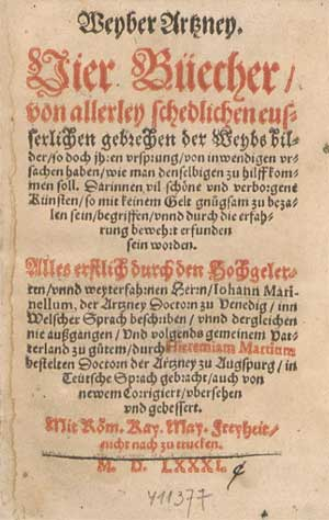 Weyber Artzney.
Vier Büecher /
von allerley schedlichen eus-
serlichen gebrechen der Weybs bil-
der / so doch jhren vrsprung / von inwendigen vr-
sachen haben / wie man denselbigen zu hilff kom-
men soll. Darinnen vil schöne vnd verborgene
Künsten / so mit keinem Gelt gnůgsam zu beza-
len sein / begriffen / vnnd durch die erfah-
rung bewehrt erfunden
sein worden.
Alles erstlich durch den Hochgeler-
ten / vnnd weyterfahrnen Herrn / Iohann Mari-
nellum, der Artzney Doctorn zu Venedig / inn
Welscher Sprach beschriben / vnnd dergleichen
nie außgangen / Vnd volgends gemeinem Vat-
terland zu gůtem / durch Hieremiam Martium
bestelten Doctorn der Artzney zu Augspurg / in
Teütsche Sprach gebracht / auch von
newem Corrigiert / vbersehen
vnd gebessert.
Mit Röm. Kay. May. Freyheit /
nicht nach zu trucken.
M. D. LXXXI.
411377